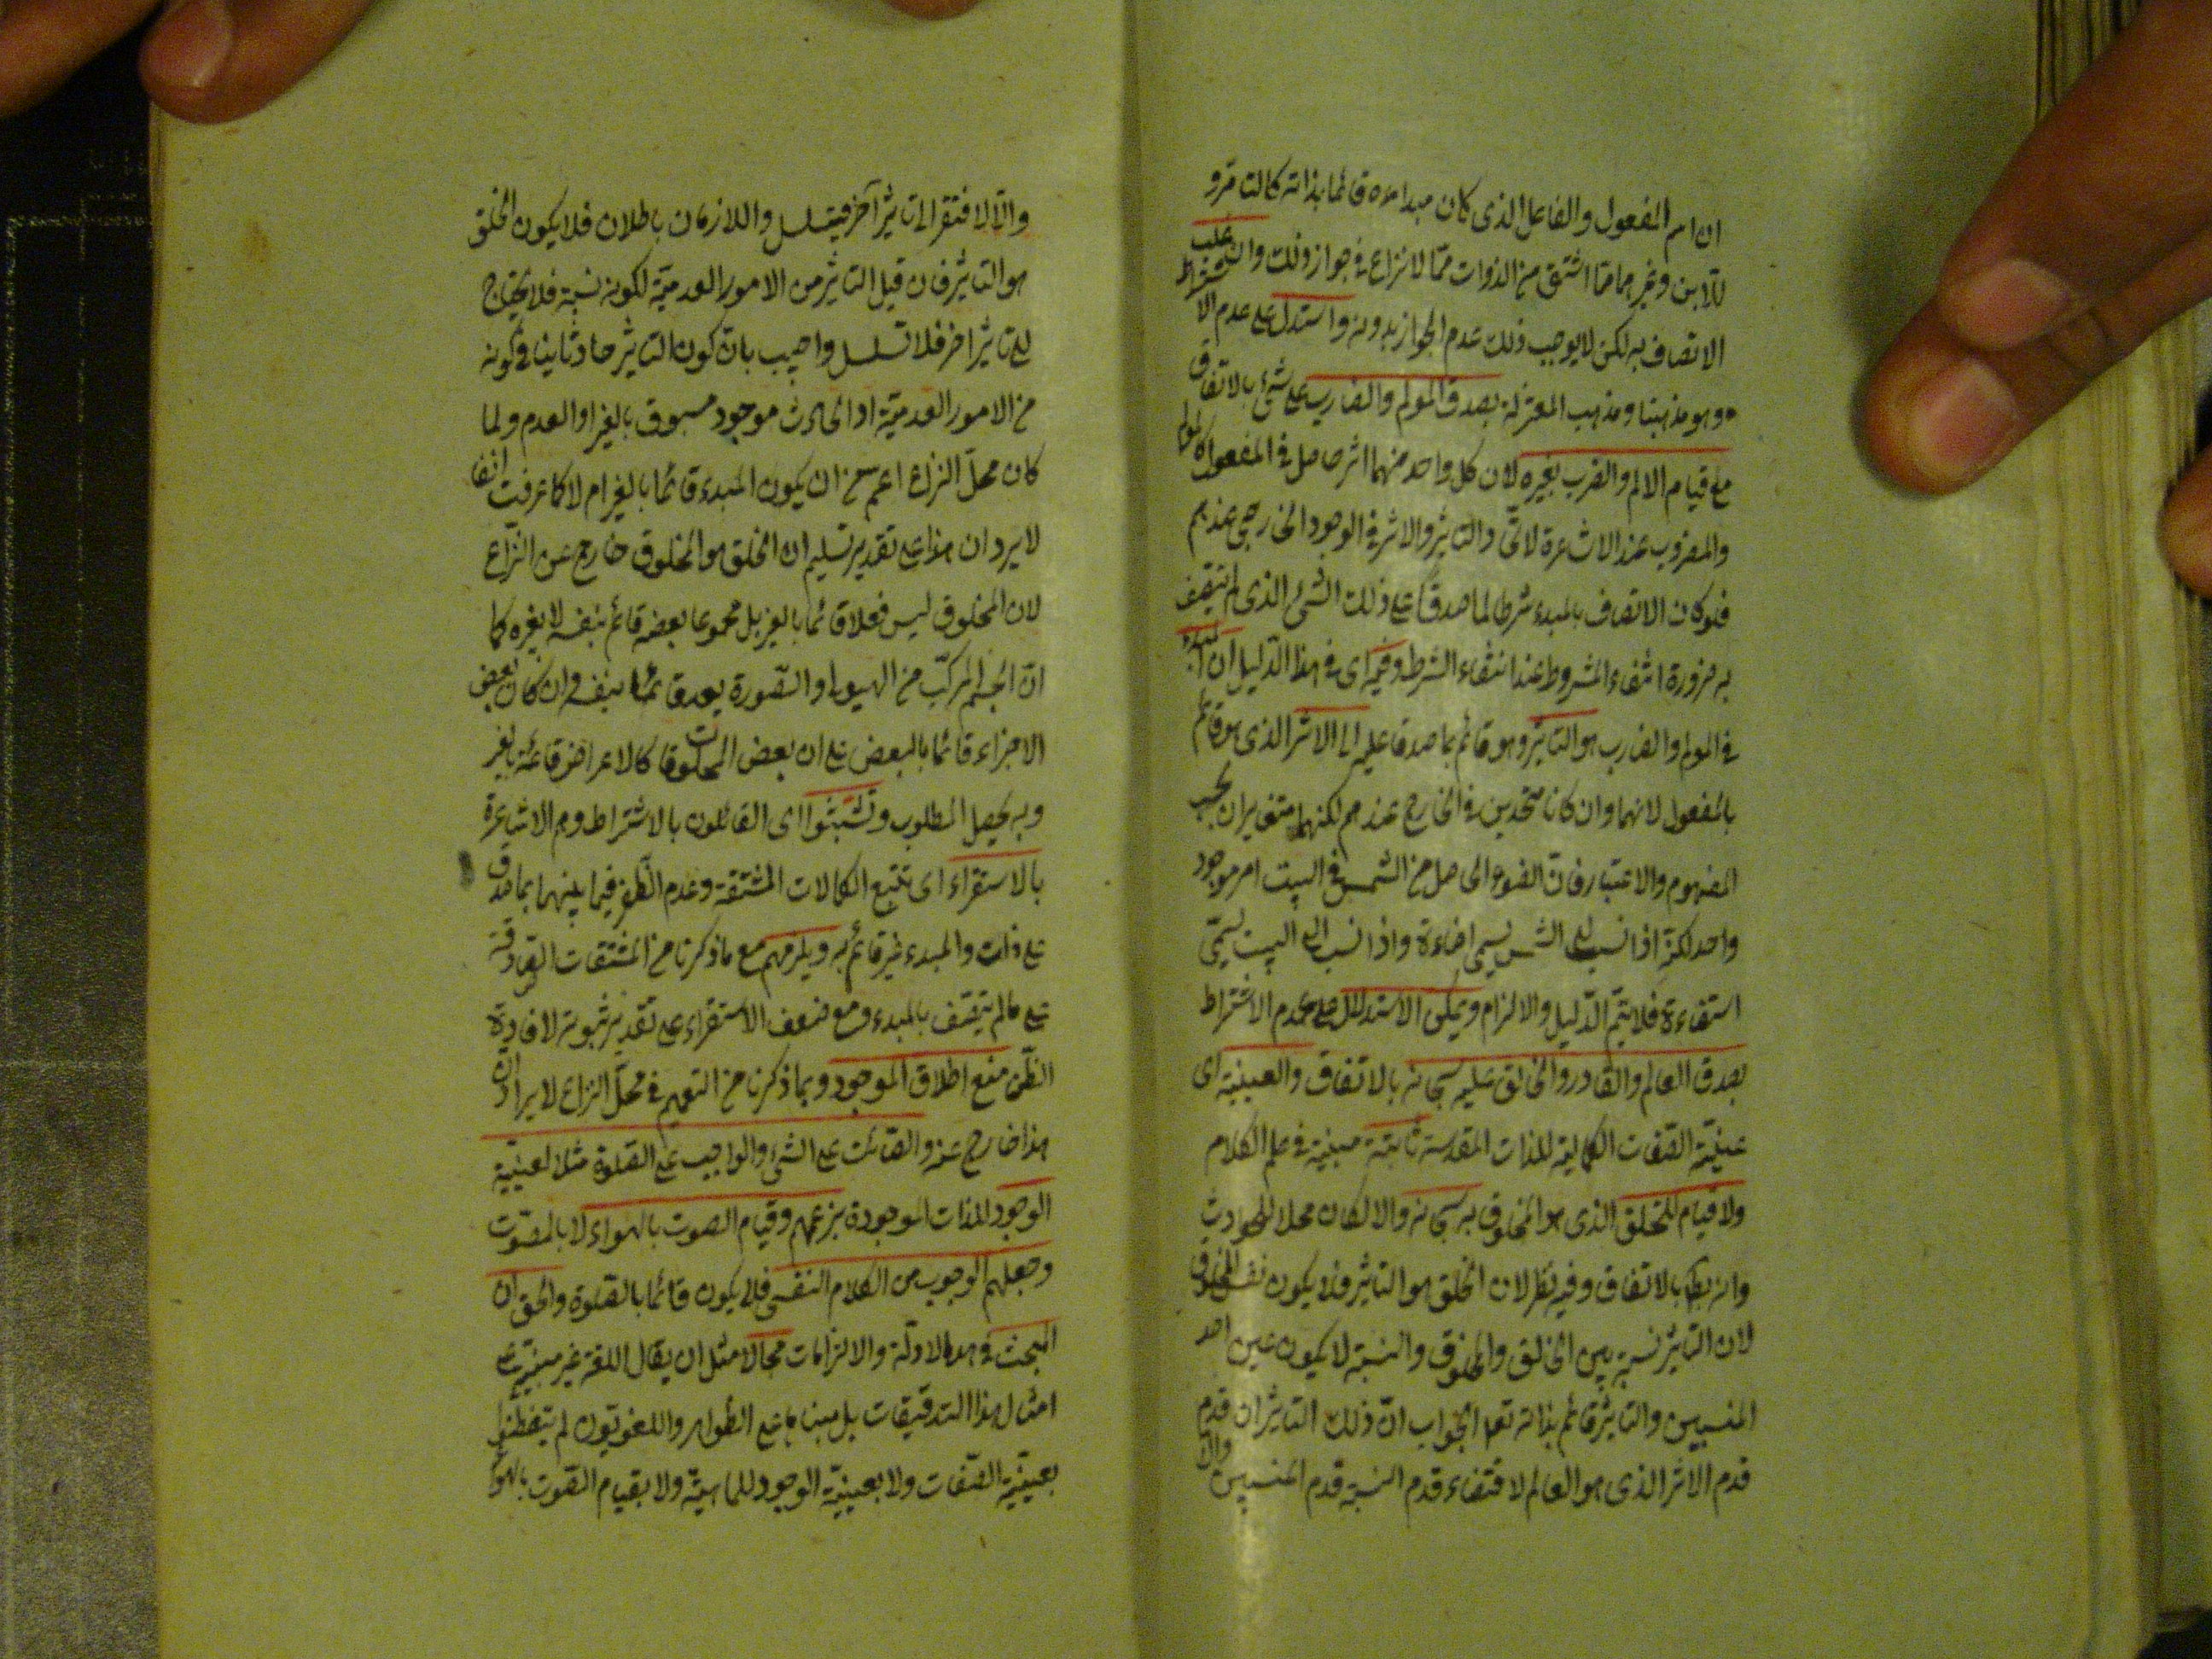 ان اسم المفعول والفاعل الذى كان مبداءه قائما بذاته كالتامر و
للابن وغيرهما مما اشتق من الذوات مما لا نزاع فى جواز ذلك وان غلب
الاتصاف به لكن لا يوجب ذلك عدم الجواز بدونه واستدل على عدم الاشتراط
وهو مذهبنا ومذهب المعتزلة بصدق المولم والضارب على شئ بالاتفاق
مع قيام الالم والضرب بغيره لان كل واحد منهما اثر حاصل فى المفعول كالمولم
والمضروب عند الاشاعرة لاتحاد التاثير والاثر فى الوجود الخارجى عندهم
فلو كان الاتصاف بالمبدء شرطا لما صدقا على ذلك الشئ الذى لم يتصف
به ضرورة انتفاء المشروط عند انتفاء الشرط وفيه اى فى هذا الدليل ان المبدء
فى المولم والضارب هو التاثير وهو قائم بما صدقا عليه لا الاثر الذى هو قائم
بالمفعول لانهما وان كانا متحدين فى الخارج عندهم لكنهما متغايران بحسب
المفهوم والاعتبار فان الضوء الحاصل من الشمس فى البيت امر موجود
واحد لكنه اذا نسب الى الشمس يسمى اضاءة واذا نسب الى البيت يسمى
استضاءة فلا يتم الدليل والالزام ويمكن الاستدلال على عدم الاشتراط
بصدق العالم والقادر والخالق عليه سبحانه بالاتفاق والعينية اى
عينية الصفات الكمالية للذات المقدسة ثابتة مبينة فى علم الكلام
ولا قيام للخلق الذى هو المخلوق به سبحانه والا لكان محلا للحوادث
وانه بط بالاتفاق وفيه نظر لان الخلق هو التاثير فلا يكون نفس المخلوق
لان التاثير نسبة بين الخالق والمخلوق والنسبة لا يكون عين احد
المنسبين والتاثير قائم بذاته تعالى الجواب ان ذلك التاثير ان قدم
قدم الاثر الذى هو العالم لاقتضاء قدم النسبة قدم المنتسبين والا
والا لافتقر الى تاثير آخر فيتسلسل واللازمان باطلان فلا يكون الخلق
هو التاثير فان قيل التاثير من الامور العدمية لكونه نسبة فلا يحتاج
الى تاثير اخر فلا تسلسل واجيب بان كون التاثير حادثا ينافى كونه
من الامور العدمية اذ الحادث موجود مسبوق بالغير او العدم ولما
كان محل النزاع اعم من ان يكون المبدء قائما بالغير ام لا كما عرفت انفا
لا يرد ان هذا على تقدير تسليم ان الخلق هو المخلوق خارج عن النزاع
لان المخلوق ليس فعلا قائما بالغير بل مجموعا بعضه قائم بنفسه لا بغيره كما
ان الجسم المركب من الهيولى والصورة يعد قائما بنفسه وان كان بعض
الاجزاء قائما بالبعض على ان بعض المخلوقات كالاعراض قائمة بالغير
وبه يحصل المطلوب وتشبثوا اى القائلون بالاشتراط وهم الاشاعرة
بالاستقراء اى تتبع الكمالات المشتقة وعدم الظفر فيما بينهما بما صدق
على ذات والمبدء غير قائم به ويلزمهم مع ما ذكرنا من المشتقات الصادقة
على ما لم يتصف بالمبدء ومع ضعف الاستقراء على تقدير ثبوته لافادة
الظن منع اطلاق الموجود وبما ذكرنا من التعميم فى محل النزاع لا يراد ان
هذا خارج عنه والصائت على الشئ والواجب على الصلوة مثلا لعينية
الوجود للذات الموجودة بزعمهم وقيام الصوت بالهواء لا بالمصوت
وجعلهم الوجوب من الكلام النفسى فلا يكون قائما بالصلوة والحق ان
للبحث فى هذه الادلة والالزامات مجالا مثل ان يقال اللغة غير مبنية على
امثال هذا التدقيقات بل مبناها على الظواهر واللغويون لم يتفطنوا
بعينية الصفات ولا بعينية الوجود للماهية ولا بقيام الصوت بالهواء